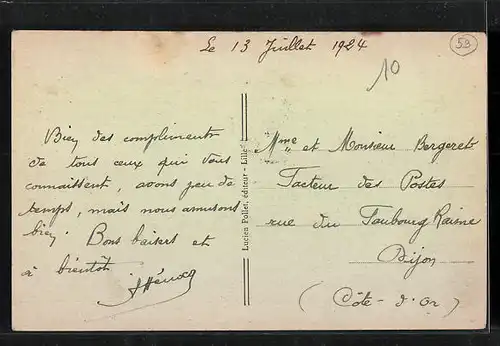 Le 13 Juillet 1924
10
53
Bien des compliments
de tous ceux qui vous
connaissent, avons peu de
temps, mais nous amusons
bien. Bons baisers et
à bientôt
Lucien Pollet, éditeur - Lille
Mme et Monsieur Bergeret
Facteur des Postes
rue du Faubourg Raisne
Dijon
(Côte-d'Or)